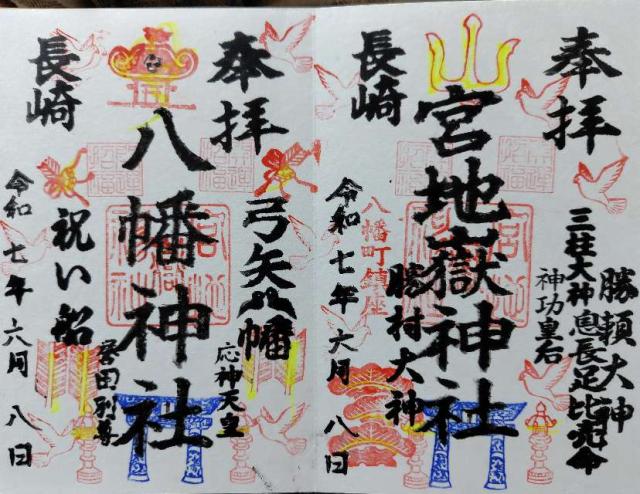 奉拝
三柱大神息長足比売命
勝頼大神
神功皇后
宮地嶽神社
八幡町鎮座
勝村大神
長崎
令和七年六月八日
奉拝
弓矢八幡
応神天皇
八幡神社
誉田別尊
長崎
祝い船
令和七年六月八日